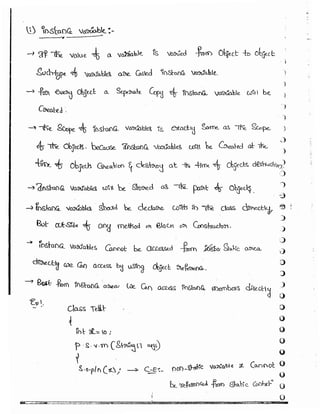 (i) instance variable :-
→ If the value of a variable is varied from object to object
Such type of variables are called instance variable.
→ for every object a separate copy of instance variable will be
Created.
→ The Scope of instance variables is exactly Same as the Scope
of the objects. because instance variables will be Created at the
time of object creation & destroy at the time of objects destruction.
→ Instance variables will be Stored as the part of objects.
→ Instance variables Should be declare with in the class directly,
But out-side of any method or Block or Constructor.
→ instance variables Cannot be accessed from static area
directly we can access by using object reference.
→ But from instance area we can access instance members directly
Ex:-
class Test
{
int x=10;
p.s.v.m(String[] args)
{
S.o.pln(x); → C.E:- non-static variable x Cannot
be referenced from static context